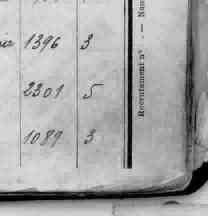 1396 3
2301 5
1089 3
Recrutement n° . — Nu